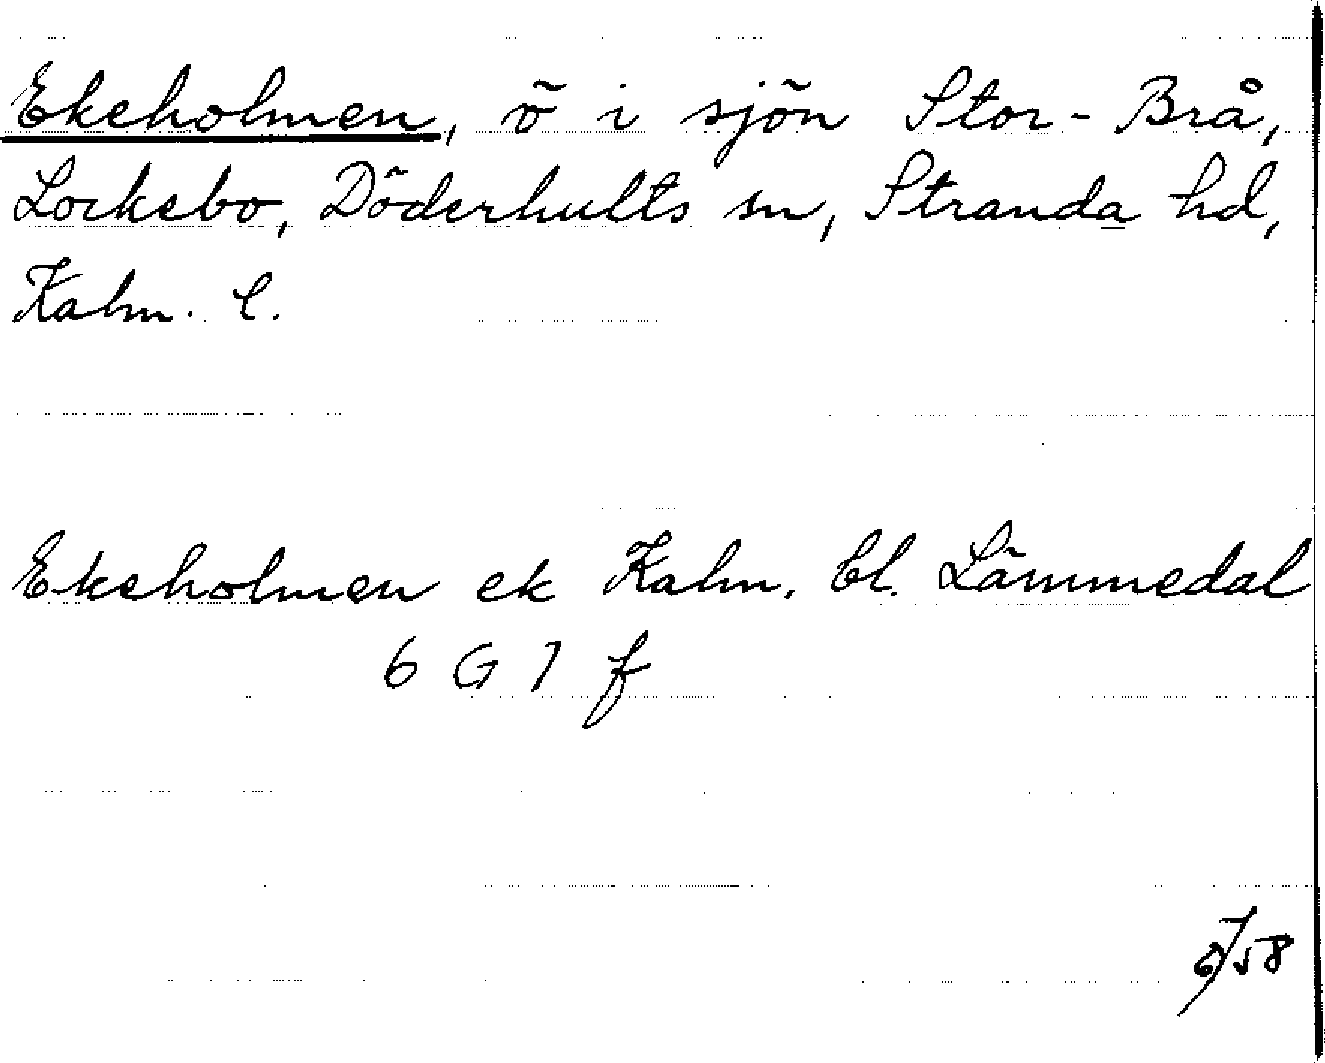 Ekeholmen, ö i sjön Stor-Brå,
Locksbo, Döderhults sn, Stranda hd,
Kalm. l.
Ekeholmen ek Kalm. bl. Lämmedal
6 G 7 f